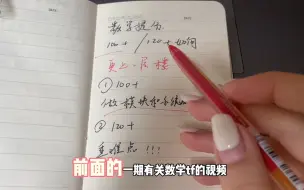 数学提分
100+ / 120+ 如何
更上一层楼
① 100+
做模块和系统
② 120+
重难点!!!
前面的一期有关数学tf的视频